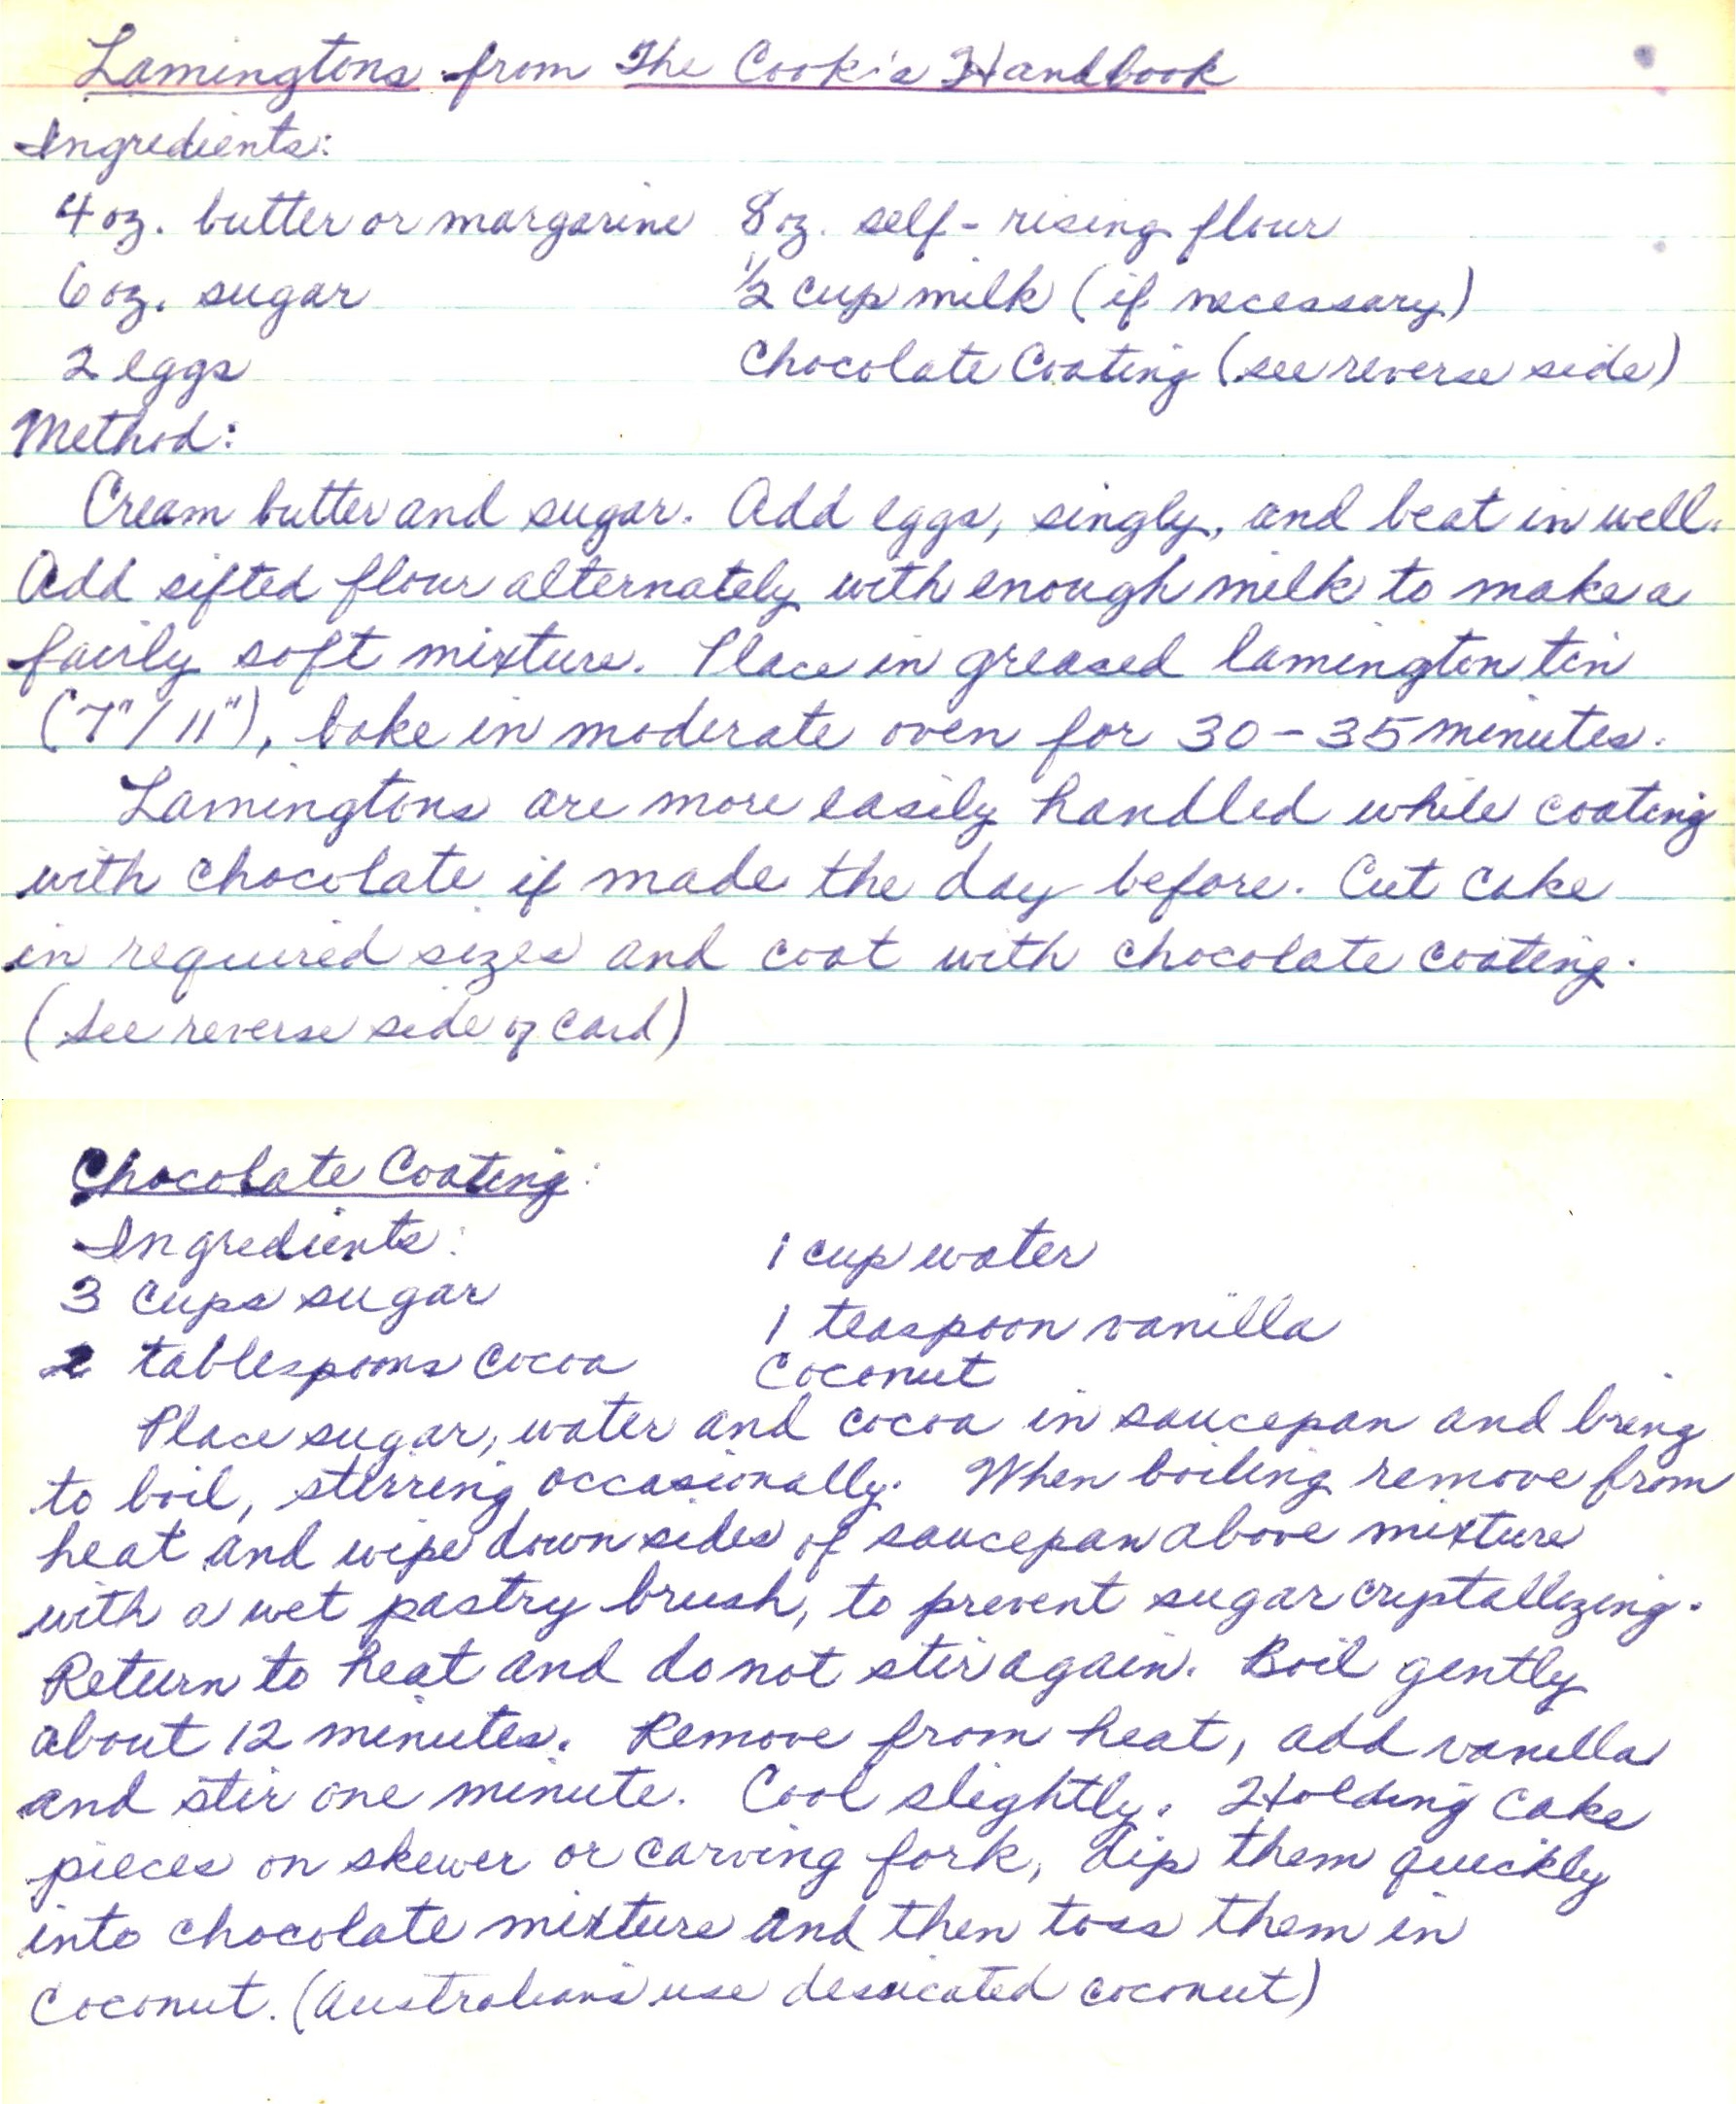 Lamingtons from The Cook's Handbook
Ingredients:
4 oz. butter or margarine 8 oz. self-rising flour
6 oz. sugar ½ cup milk (if necessary)
2 eggs Chocolate Coating (see reverse side)
Method:
Cream butter and sugar. Add eggs, singly, and beat in well.
Add sifted flour alternately with enough milk to make a
fairly soft mixture. Place in greased lamington tin
(7"/11"), bake in moderate oven for 30-35 minutes.
Lamingtons are more easily handled while coating
with chocolate if made the day before. Cut cake
in required sizes and coat with chocolate coating.
(See reverse side of card)
Chocolate Coating:
Ingredients:
1 cup water
3 cups sugar
1 teaspoon vanilla
2 tablespoons cocoa
Coconut
Place sugar, water and cocoa in saucepan and bring
to boil, stirring occasionally. When boiling remove from
heat and wipe down sides of saucepan above mixture
with a wet pastry brush, to prevent sugar cryptallizing.
Return to heat and do not stir again. Boil gently
about 12 minutes. Remove from heat, add vanilla
and stir one minute. Cool slightly. Holding cake
pieces on skewer or carving fork, dip them quickly
into chocolate mixture and then toss them in
Coconut. (Australians use dessicated coconut)